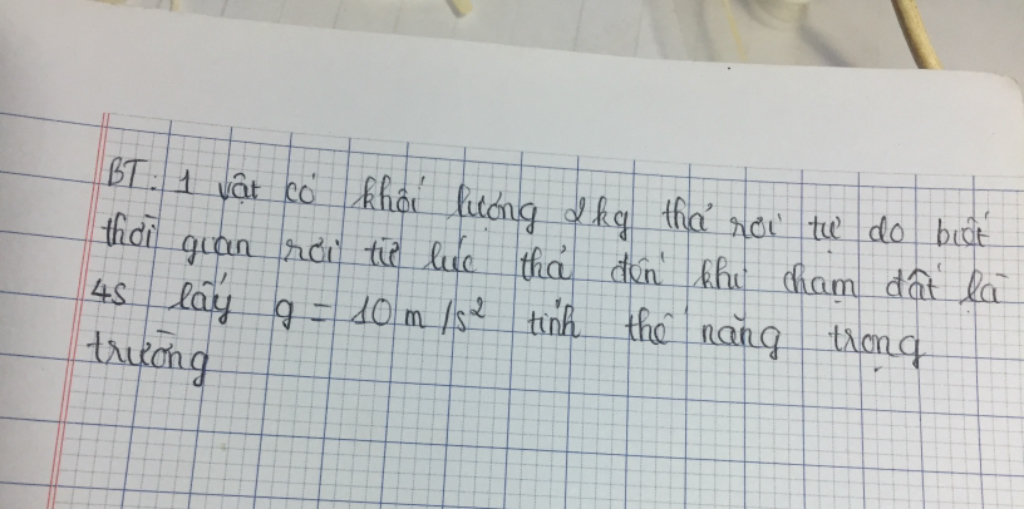 BT: 1 vật có khối lượng 2kg thả rơi tự do biết
thời gian rơi từ lúc thả đến khi chạm đất là
4s lấy g = 10 m/s² tính thế năng trọng
trường